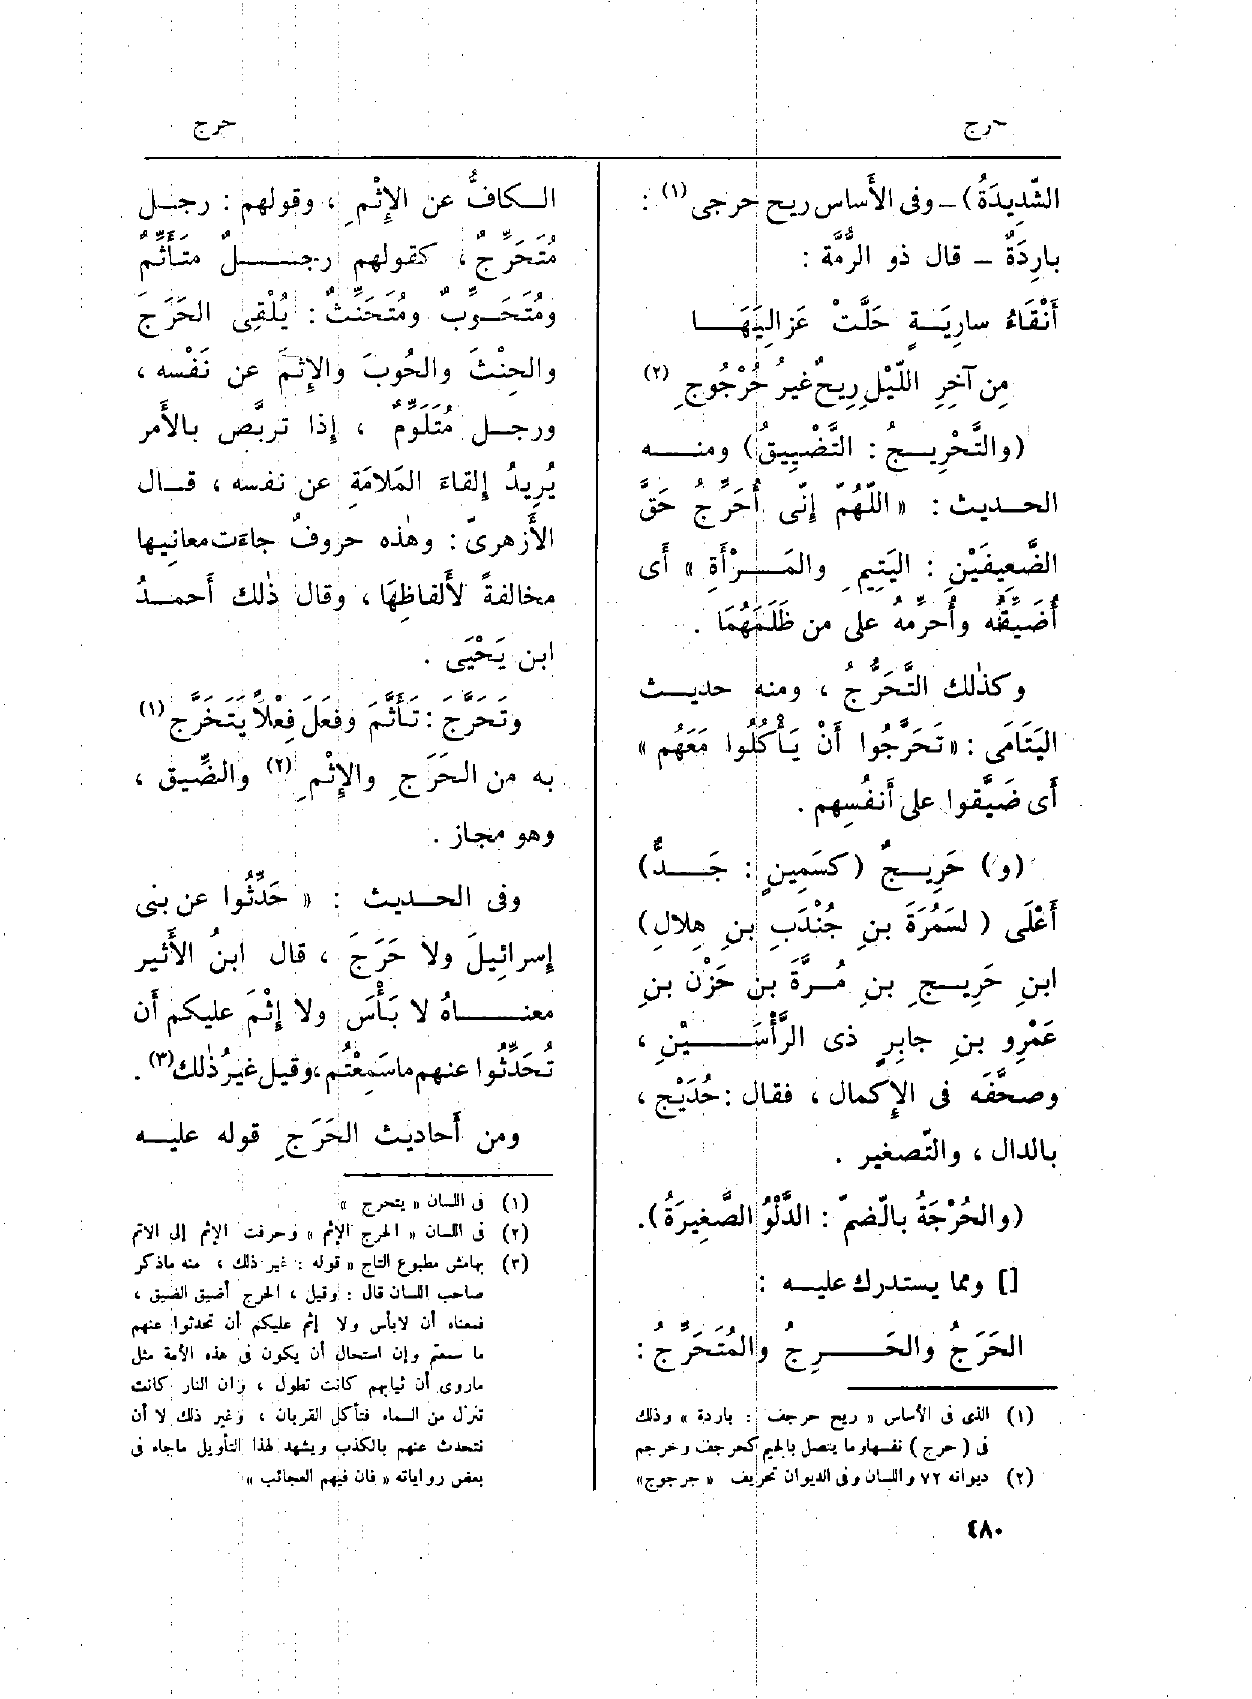 حرج
حرج
الشَّدِيدَةُ) ــ وفى الأَساس ريح حرجى (١) :
بارِدَةٌ ــ قال ذو الرُّمَّة :
أَنْقَاءُ سارِيَــةٍ حَلَّتْ عَزالِيَهَــا
مِن آخِرِ اللَّيْلِ رِيحٌ غيرُ حُرْجُوجِ (٢)
(والتَّحْرِيــجُ : التَّضْيِيقُ) ومنــه
الحـديث : « اللّهُمّ إِنّى أُحَرِّجُ حَقَّ
الضَّعِيفَيْنِ : اليَتِيمِ والمَــرْأَةِ » أَى
أُضَيِّقُه وأُحرِّمُه على من ظَلَمَهُمَا .
وكذٰلك التَّحَرُّجُ ، ومنه حديث
اليَتَامَى : « تَحَرَّجُوا أَنْ يَأْكُلُوا مَعَهُم »
أَى ضَيَّقوا على أَنفُسِهم .
(و) حَرِيــجٌ (كسَمِينٍ : جَــدٌّ)
أَعْلَى ( لسَمُرَةَ بنِ جُنْدَبِ بنِ هِلالِ)
ابنِ حَرِيــجِ بنِ مُــرَّةَ بنِ حَزْنِ بنِ
عَمْرِو بنِ جابِرٍ ذى الرَّأْسَــيْنِ ،
وصحَّفَه فى الإِكمال ، فقال : حُدَيْج ،
بالدال ، والتّصغير .
(والحُرْجَةُ بالضمّ : الدَّلْوُ الصَّغِيرَةُ).
[] ومما يستدرك عليــه :
الحَرَجُ والحَــرِجُ والمُتَحَرِّجُ :
(١) الذى فى الأساس « ريح حرجف : باردة » وذلك
فى ( حرج ) نفسها وما يتصل بالجيم كحرجف وخرجم
(٢) ديوانه ٧٢ واللسان وفى الديوان تحريف « جرجوج»
الــكافُّ عن الإِثْمِ ، وقولهم : رجــل
مُتَحَرِّجٌ ، كقولهم رجــلٌ متَأَثِّمٌ
ومُتَحَــوِّبٌ ومُتَحَنِّثٌ : يُلْقِى الحَرَجَ
والحِنْثَ والحُوبَ والإِثمَ عن نَفْسه ،
ورجــل مُتَلَوِّمٌ ، إِذا تربَّص بالأَمر
يُرِيدُ إِلقاءَ المَلامَةِ عن نفسه ، قــال
الأَزهرىّ : وهٰذه حروفٌ جاءَت معانيها
مخالفةً لأَلفاظِهَا ، وقال ذٰلك أَحمــدُ
ابن يَحْيَى .
وتَحَرَّجَ : تَأَثَّمَ وفعَلَ فِعْلاً يَتَحَرَّج (١)
به من الحَرَجِ والإِثْمِ (٢) والضِّيق ،
وهو مجاز .
وفى الحــديث : « حَدِّثُوا عن بنى
إِسرائِيلَ ولا حَرَجَ ، قال ابنُ الأَثير
معنــاهُ لا بَأْسَ ولا إِثْمَ عليكم أَن
تُحَدِّثُوا عنهم ما سَمِعْتُم ، وقيل غيرُ ذٰلك (٣) .
ومن أَحاديث الحَرَجِ قوله عليــه
(١) فى اللسان « يتحرج »
(٢) فى اللسان « الحرج الإثم » وحرفت الإثم إلى الاثم
(٣) بهامش مطبوع التاج « قوله : غير ذلك ، منه ماذكر
صاحب اللسان قال : وقيل ، الحرج أضيق الضيق ،
فمعناه أن لابأس ولا إثم عليكم أن تحدثوا عنهم
ما سمعتم وإن استحال أن يكون فى هذه الأمة مثل
ماروى أن ثيابهم كانت تطول ، وان النار كانت
تنزل من السماء فتأكل القربان ، وغير ذلك لا أن
نتحدث عنهم بالكذب ويشهد لهذا التأويل ماجاء فى
بعض رواياته « فان فيهم العجائب »
٤٨٠